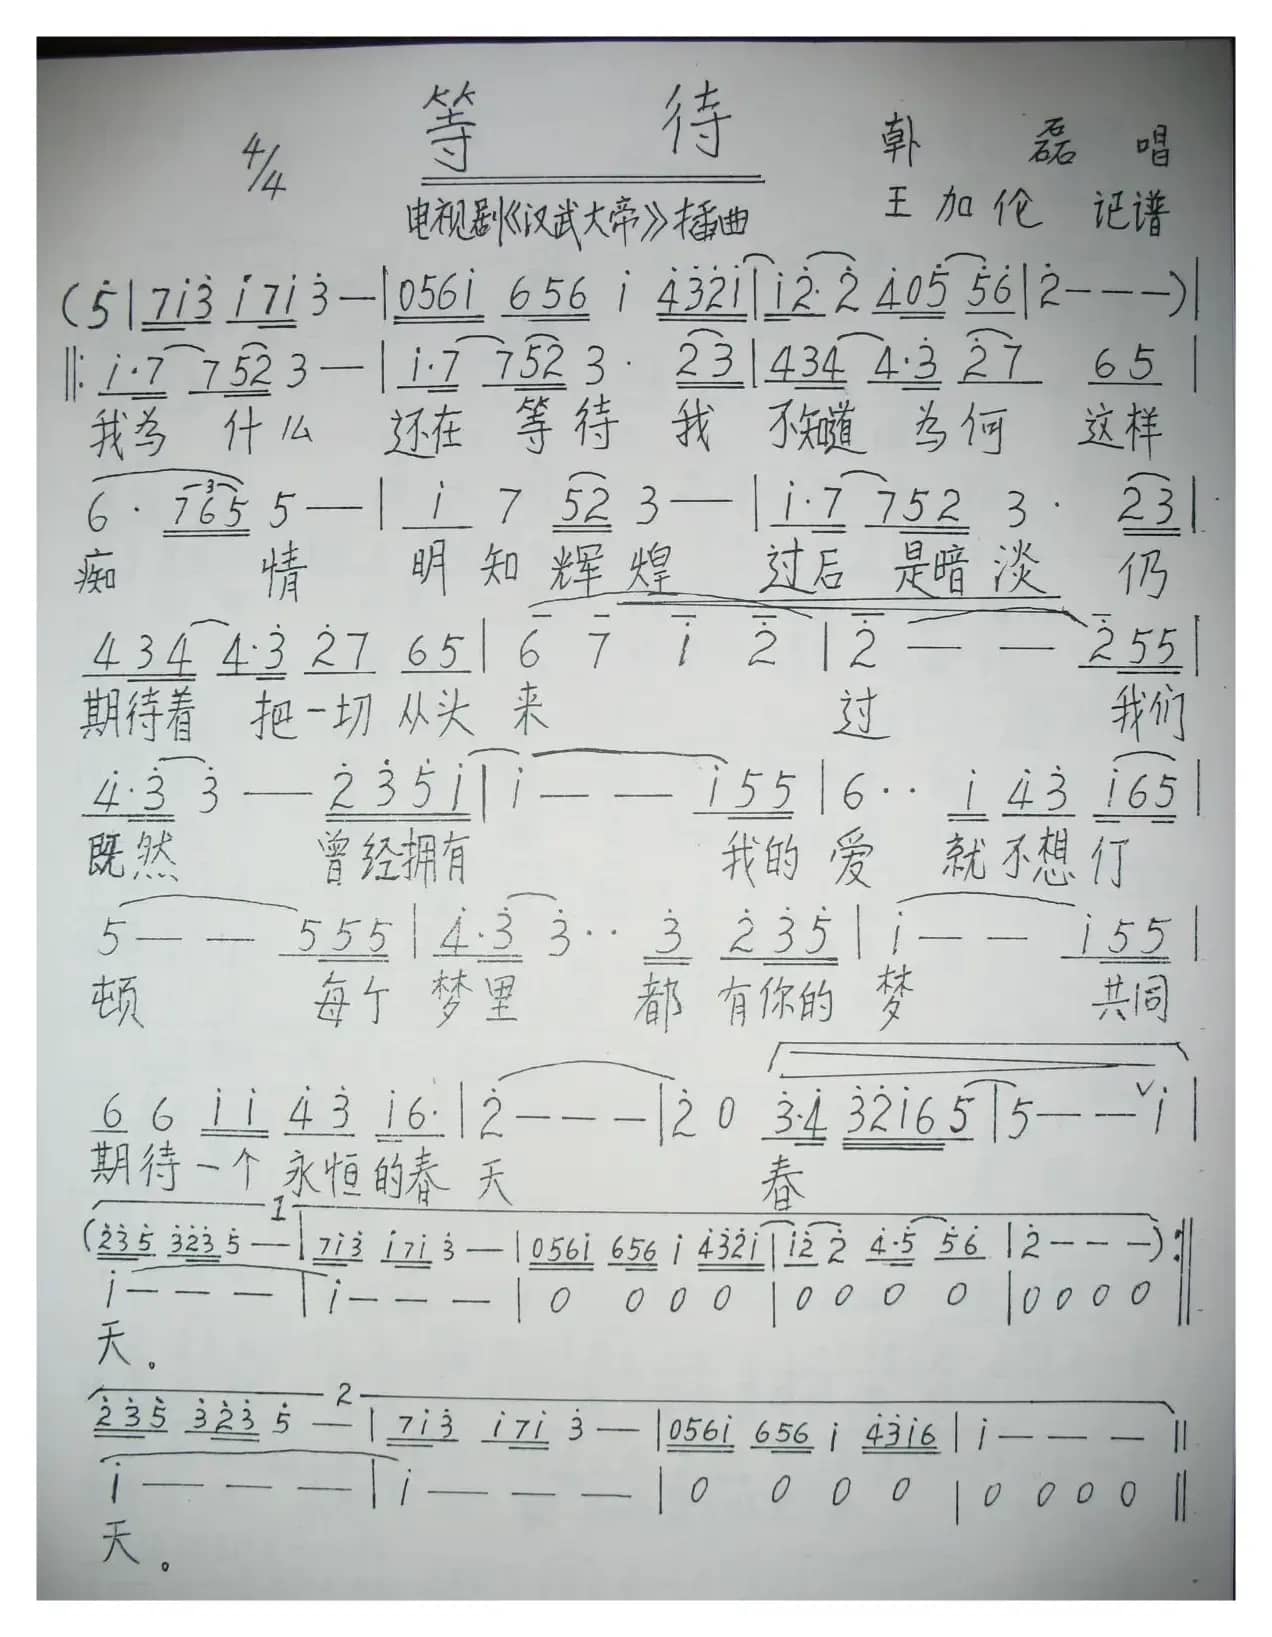 等 待
4/4
韩 磊 唱
电视剧《汉武大帝》插曲
王加伦 记谱
(5̇|7i̇3̇ i̇7i̇ 3̇—|056i̇ 656 i̇ 4̇3̇2̇i̇|i̇2̇·2̇ 4̇05̇ 5̇6̇|2̇———)|
‖:i̇·7 7 52 3—|i̇·7 752 3· 2̇3̇|434 4·3̇ 2̇7 65|
我为 什么 还在 等待 我 不知道 为何 这样
6· 765 5—|i̇ 7 52 3—|i̇·7 752 3· 23|
3
痴 情 明知辉煌 过后 是暗淡 仍
434 4·3̇ 2̇7 65|6 7 i̇ 2̇|2̇—— 2̇55|
期待着 把一切从头 来 过 我们
4̇·3̇ 3̇— 2̇3̇5̇i̇|i̇—— i̇55|6·· i̇ 4̇3̇ i̇65|
既然 曾经拥有 我的爱 就不想仃
5—— 555|4̇·3̇ 3̇·· 3̇ 2̇3̇5̇|i̇—— i̇55|
顿 每个 梦里 都 有你的 梦 共同
6 6 i̇i̇ 4̇3̇ i̇6·|2̇———|2̇ 0 3̇·4̇ 3̇2̇i̇65|5——ˇi̇|
期待一个 永恒的春 天 春
1
(2̇3̇5̇ 3̇2̇3̇ 5̇—|7i̇3̇ i̇7i̇ 3̇—|056i̇ 656 i̇ 4̇3̇2̇i̇|i̇2̇ 2̇ 4̇·5̇ 5̇6̇|2̇———):‖
i̇———|i̇———|0 0 0 0|0 0 0 0|0 0 0 0‖
天。
2
2̇3̇5̇ 3̇2̇3̇ 5̇—|7i̇3̇ i̇7i̇ 3̇—|056i̇ 656 i̇ 4̇3̇i̇6|i̇———‖
i̇———|i̇———|0 0 0 0|0 0 0 0‖
天。